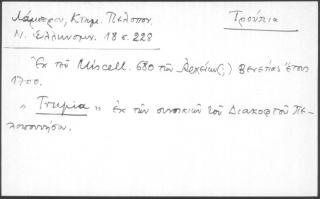 Λάμπρου, Κτημ. Πελοπον. Τρύπια
Ν. Ἑλληνομν. 18 σ. 228
Ἐκ τοῦ Miscell. 680 τῶν Ἀρχείων(;) Βενετίας ἔτους
1700.
" Τρυμία " ἐκ τῶν συνοικιῶν τοῦ Διακοφτοῦ Πε-
λοποννήσου.